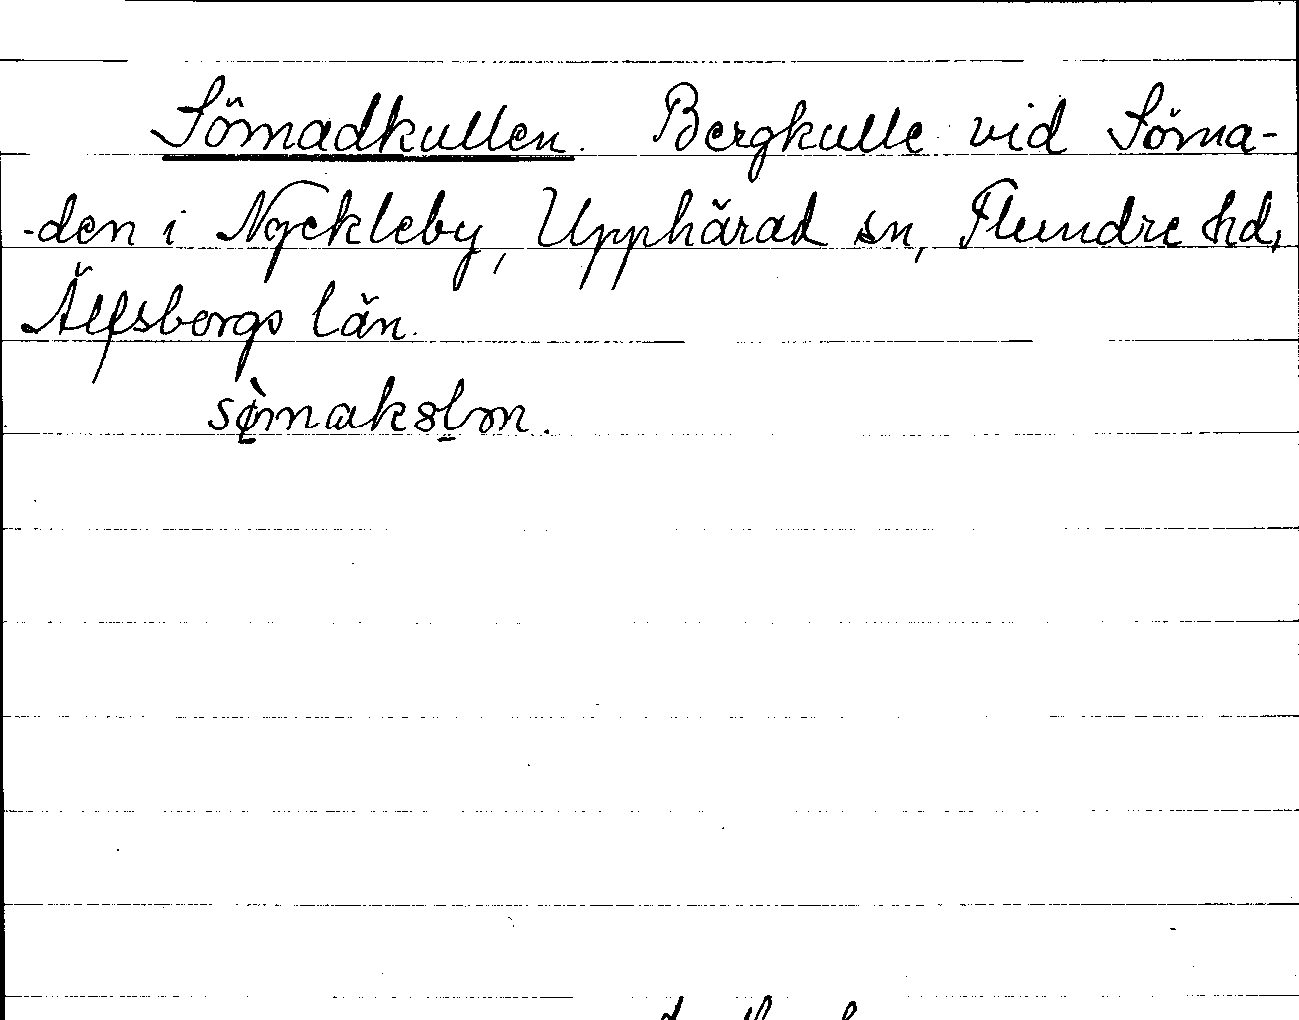 Sömadkullen. Bergkulle vid Söma-
-den i Nyckleby, Upphärad sn, Flundre hd,
Älfsborgs län.